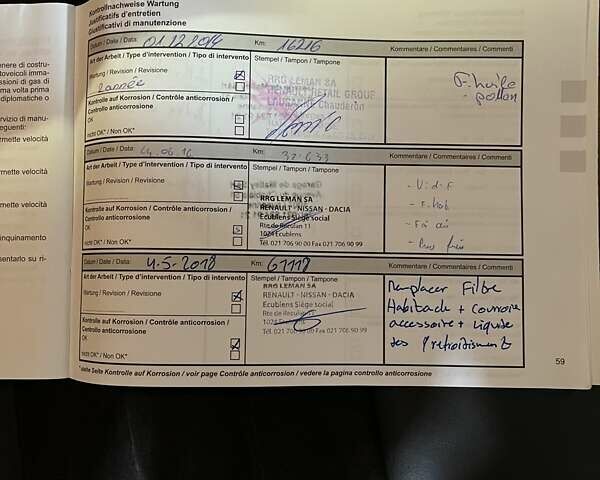 Kontrollnachweise Wartung
Justificatifs d'entretien
Giustificativi di manutenzione
Datum / Date / Data: 01.12.2014 Km: 16216 Kommentare / Commentaires / Commenti
Art der Arbeit / Type d'intervention / Tipo di intervento Stempel / Tampon / Tampone
Wartung / Revision / Revisione
2 année
RRG LEMAN SA
RENAULT RETAIL GROUP
LAUSANNE Chauderon
F. huile
- pollen
Kontrolle auf Korrosion / Contrôle anticorrosion /
Controllo anticorrosione
OK
nicht OK* / Non OK*
Datum / Date / Data: 06.16 Km: 32 633 Kommentare / Commentaires / Commenti
Art der Arbeit / Type d'intervention / Tipo di intervento Stempel / Tampon / Tampone
Wartung / Revision / Revisione
RRG LEMAN SA
RENAULT - NISSAN - DACIA
Ecublens Siège social
Rte de Reculan 11
1024 Ecublens
Tél. 021 706 90 00 Fax 021 706 90 99
- V.d.F
- F. hab
Kontrolle auf Korrosion / Contrôle anticorrosion /
Controllo anticorrosione
OK
nicht OK* / Non OK*
Datum / Date / Data: 4-5-2018 Km: 67118 Kommentare / Commentaires / Commenti
Art der Arbeit / Type d'intervention / Tipo di intervento Stempel / Tampon / Tampone
Wartung / Revision / Revisione
RRG LEMAN SA
RENAULT - NISSAN - DACIA
Ecublens Siège social
Rte de Reculan 11
1024
Tél. 021 706 90 00 Fax 021 706 90 99
Remplacer Filtre
Habitacle + Courroie
accessoire + Liquide
Kontrolle auf Korrosion / Contrôle anticorrosion /
Controllo anticorrosione
OK
nicht OK* / Non OK*
*siehe Seite Kontrolle auf Korrosion / voir page Contrôle anticorrosion / vedere la pagina controllo anticorrosione
59
enere di costru-
toveicoli imma-
issioni di gas di
ma volta prima
diplomatiche o
rvizio di manu-
eguenti:
rmette velocità
rmette velocità
rmette velocità
inquinamento
sentarlo su ri-